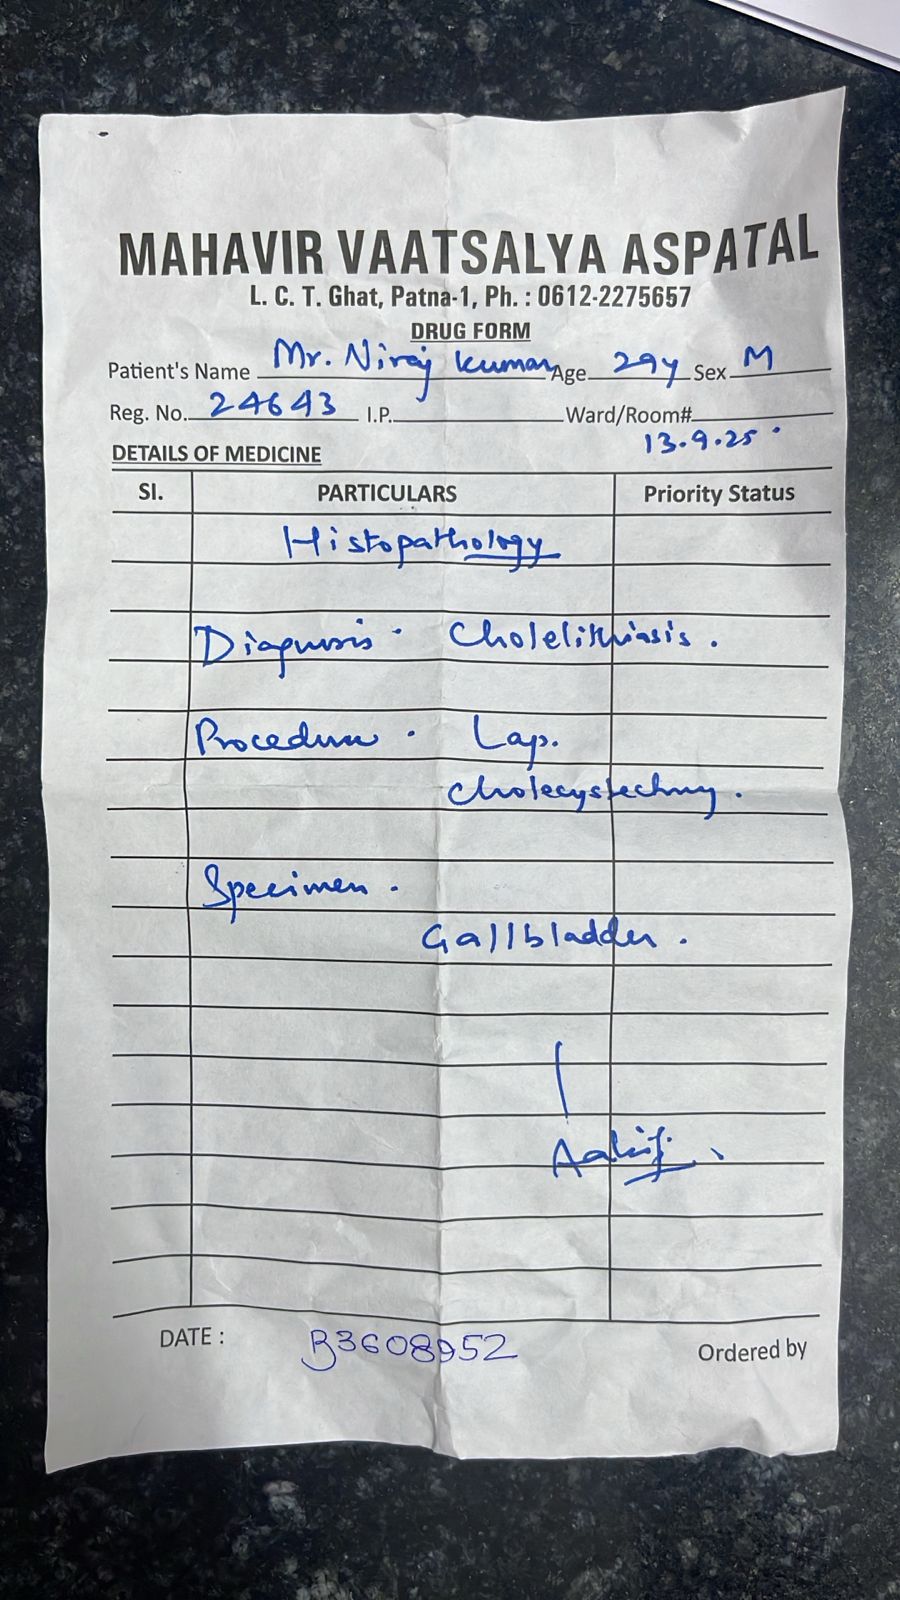 MAHAVIR VAATSALYA ASPATAL
L. C. T. Ghat, Patna-1, Ph. : 0612-2275657
DRUG FORM
Patient's Name Mr. Niraj Kumar Age 29y Sex M
Reg. No. 24643 I.P. Ward/Room#
13.9.25
DETAILS OF MEDICINE
SI. PARTICULARS Priority Status
Histopathology
Diagnosis. Cholelithiasis.
Procedure. Lap.
Cholecystectomy.
Specimen.
Gallbladder.
DATE : B3608952 Ordered by